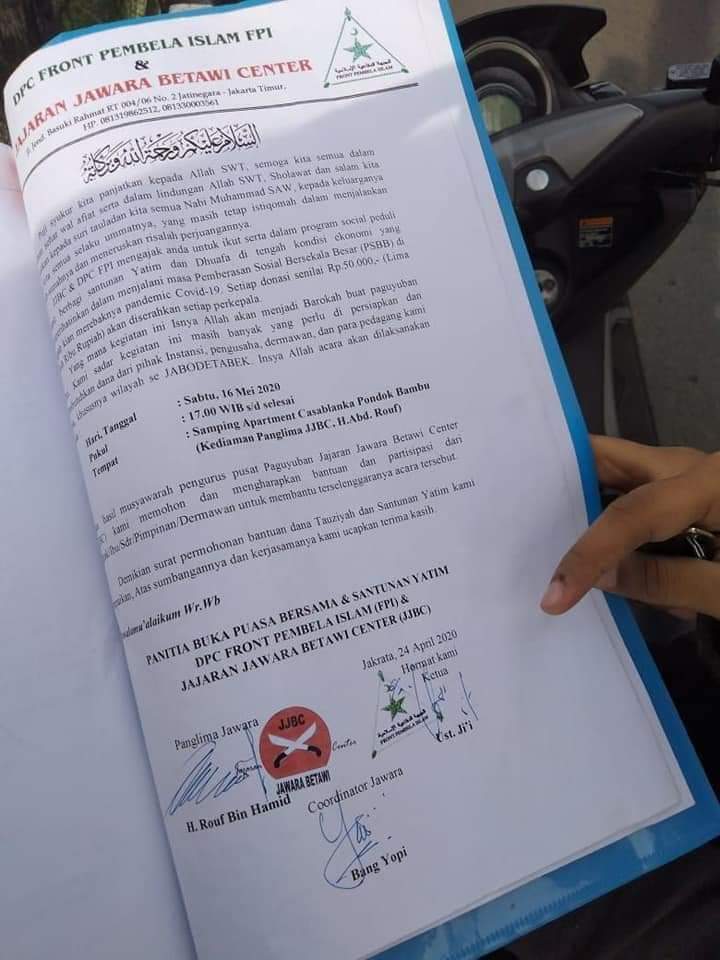 DPC FRONT PEMBELA ISLAM FPI
&
JAJARAN JAWARA BETAWI CENTER
Jl. Jend. Basuki Rahmat RT 004/06 No. 2 Jatinegara - Jakarta Timur.
HP 081319862512, 081330003561
الجبهة الدفاعية الإسلامية
FRONT PEMBELA ISLAM
السلام عليكم ورحمة الله وبركاته
Puji syukur kita panjatkan kepada Allah SWT, semoga kita semua dalam
sehat wal afiat serta dalam lindungan Allah SWT. Sholawat dan salam kita
kepada suri tauladan kita semua Nabi Muhammad SAW, kepada keluarganya
semua selaku ummatnya, yang masih tetap istiqomah dalam menjalankan
dan meneruskan risalah perjuangannya.
JJBC & DPC FPI mengajak anda untuk ikut serta dalam program social peduli
berbagi santunan Yatim dan Dhuafa di tengah kondisi ekonomi yang
dalam menjalani masa Pemberasan Sosial Bersekala Besar (PSBB) di
kian merebaknya pandemic Covid-19. Setiap donasi senilai Rp.50.000,- (Lima
Ribu Rupiah) akan diserahkan setiap perkepala.
Yang mana kegiatan ini Isnya Allah akan menjadi Barokah buat paguyuban
Kami sadar kegiatan ini masih banyak yang perlu di persiapkan dan
dana dari pihak Instansi, pengusaha, dermawan, dan para pedagang kami
khususnya wilayah se JABODETABEK. Insya Allah acara akan dilaksanakan
Hari, Tanggal : Sabtu, 16 Mei 2020
Pukul : 17.00 WIB s/d selesai
Tempat : Samping Apartment Casablanka Pondok Bambu
(Kediaman Panglima JJBC. H.Abd. Rouf)
hasil musyawarah pengurus pusat Paguyuban Jajaran Jawara Betawi Center
kami memohon dan mengharapkan bantuan dan partisipasi dari
/Ibu/Sdr/Pimpinan/Dermawan untuk membantu terselenggaranya acara tersebut.
Demikian surat permohonan bantuan dana Tauziyah dan Santunan Yatim kami
Atas sumbangannya dan kerjasamanya kami ucapkan terima kasih.
Wr.Wb
PANITIA BUKA PUASA BERSAMA & SANTUNAN YATIM
DPC FRONT PEMBELA ISLAM (FPI) &
JAJARAN JAWARA BETAWI CENTER (JJBC)
Jakrata, 24 April 2020
Hormat kami
Ketua
Panglima Jawara
JJBC
Jajaran Center
JAWARA BETAWI
الجبهة الدفاعية الإسلامية
FRONT PEMBELA ISLAM
Ust. Ji'i
H. Rouf Bin Hamid
Coordinator Jawara
Bang Yopi